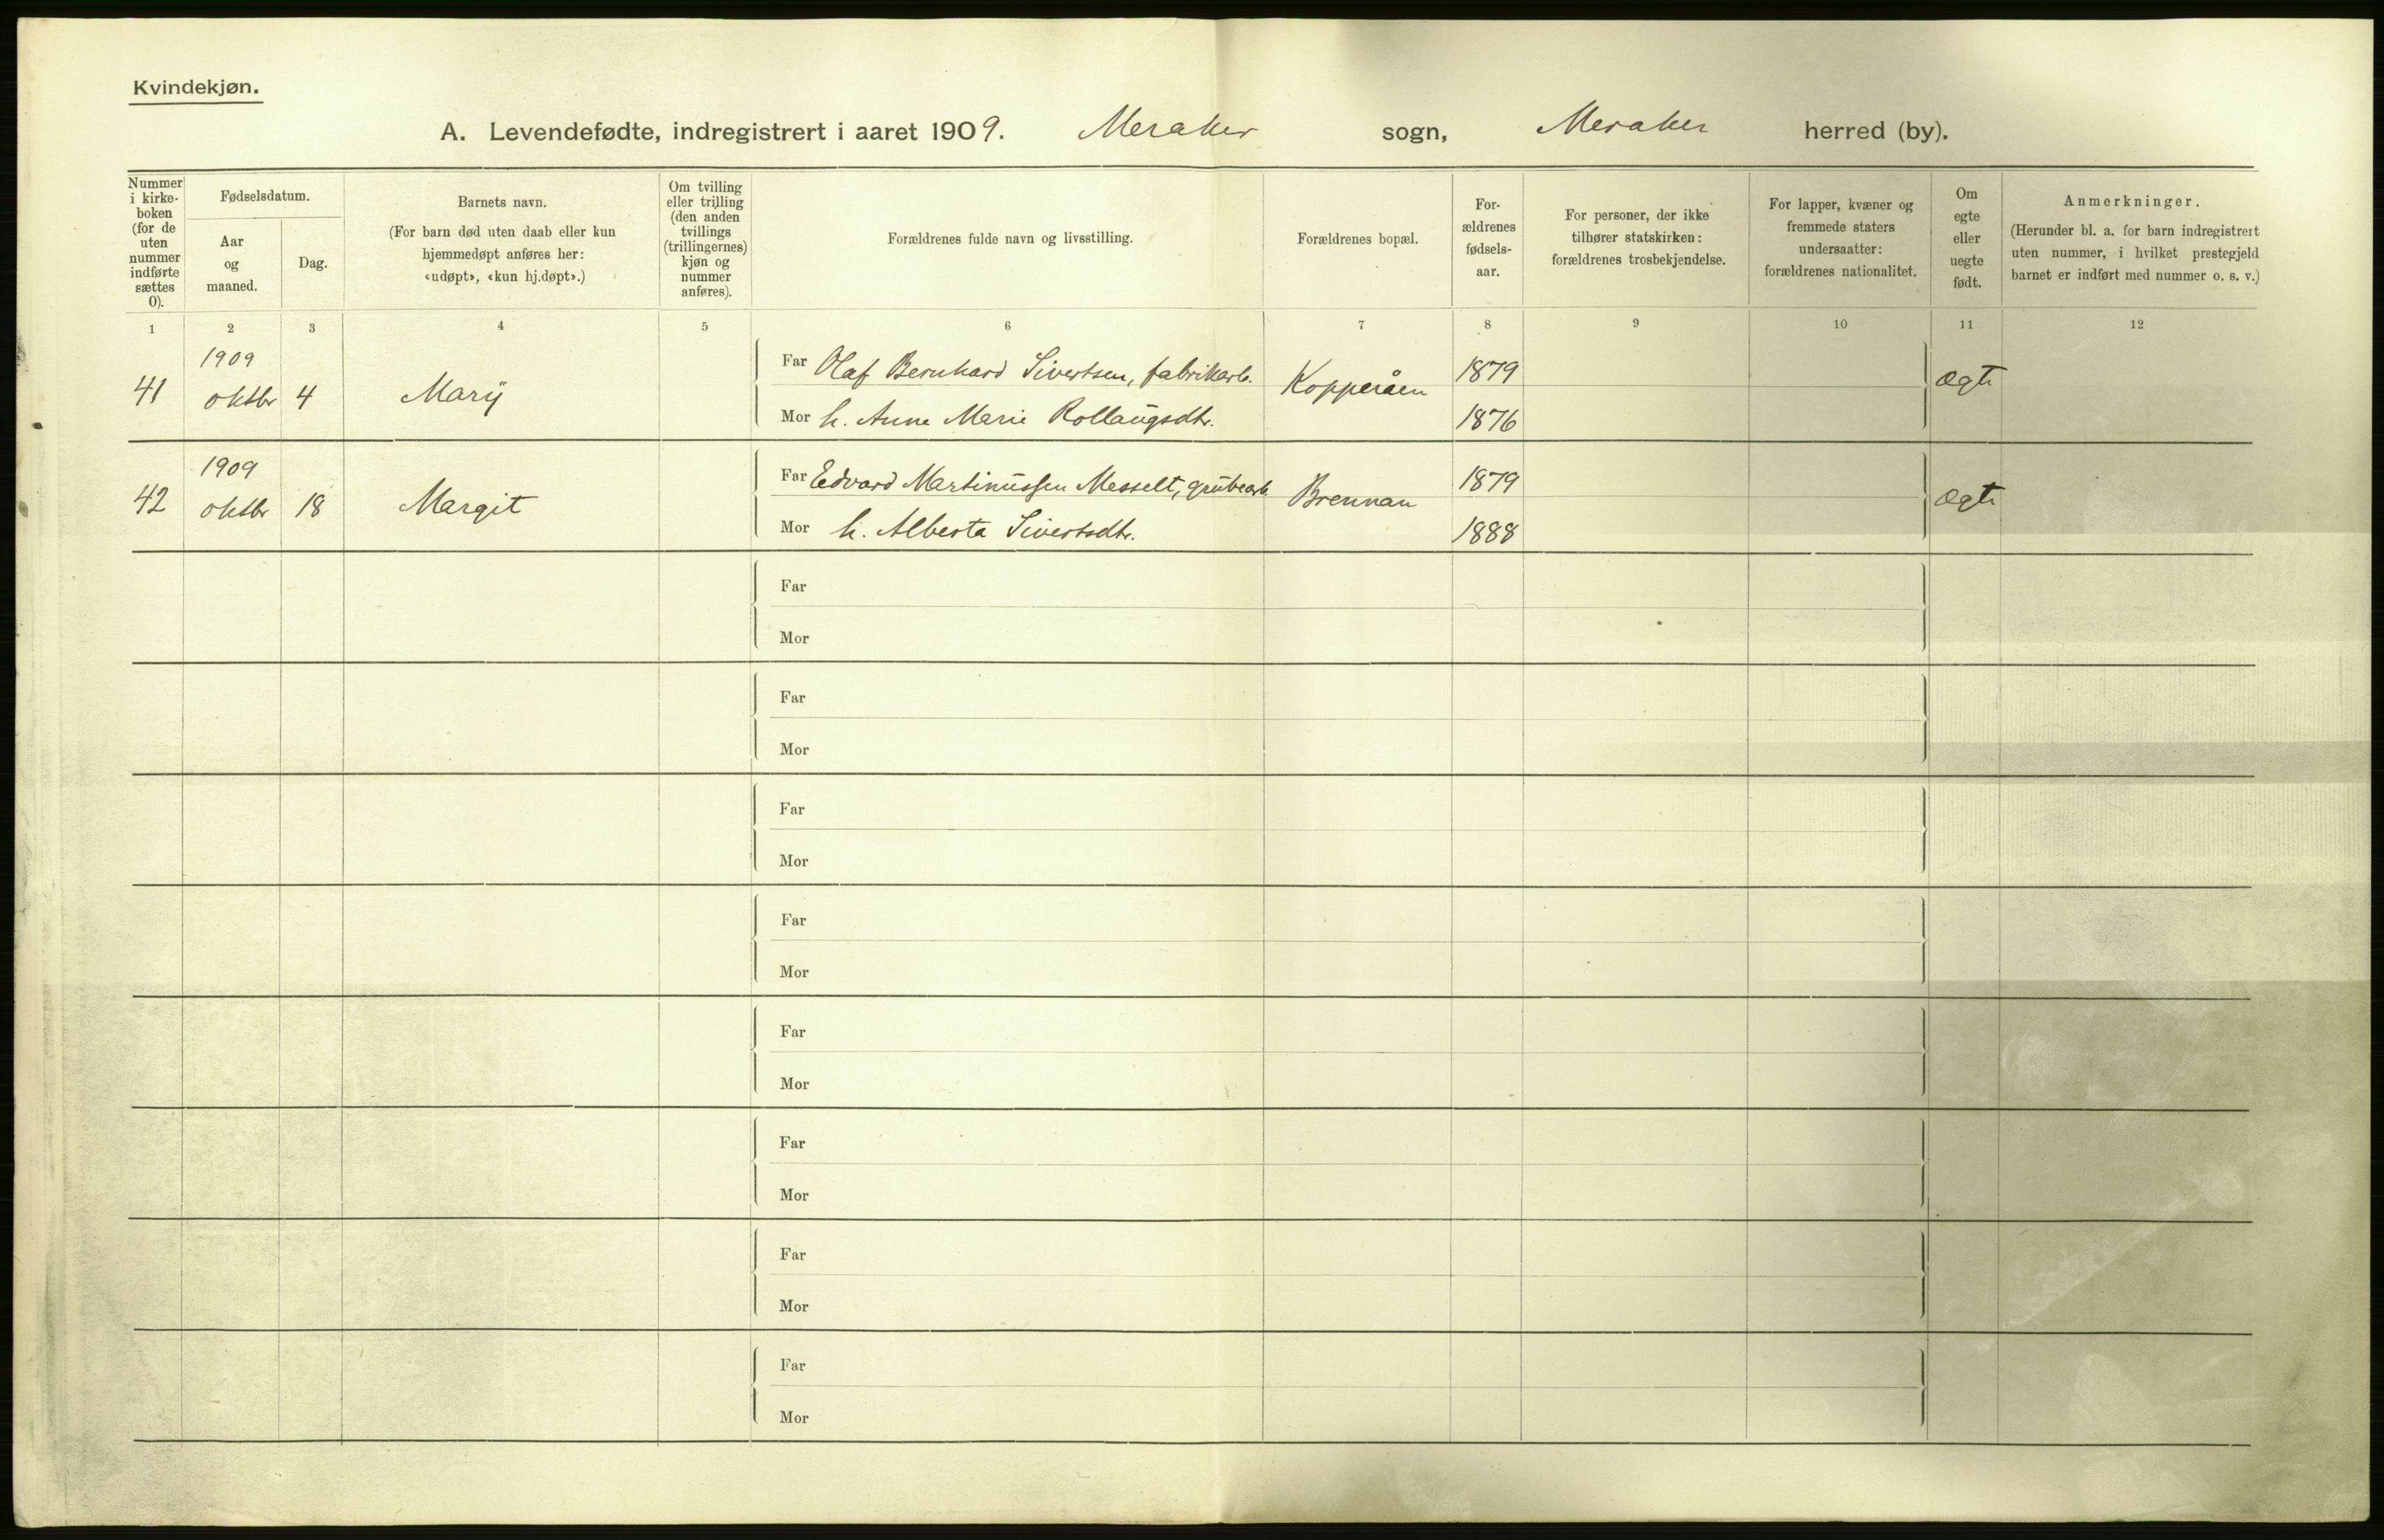 Kvindekjøn.
A. Levendefødte, indregistrert i aaret 1909. Meraker sogn, Meraker herred (by).
Nummer i kirke- boken (for de uten nummer indførte sættes 0).
Fødselsdatum.
Aar og maaned.
Dag.
Barnets navn.
(For barn død uten daab eller kun hjemmedøpt anføres her: «udøpt», «kun hj.døpt».)
Om tvilling eller trilling (den anden tvillings (trillingernes) kjøn og nummer anføres).
Forældrenes fulde navn og livsstilling.
Forældrenes bopæl.
For- ældrenes fødsels- aar.
For personer, der ikke tilhører statskirken: forældrenes trosbekjendelse.
For lapper, kvæner og fremmede staters undersaatter: forældrenes nationalitet.
Om egte eller uegte født.
Anmerkninger.
(Herunder bl. a. for barn indregistrert uten nummer, i hvilket prestegjeld barnet er indført med nummer o. s. v.)
1 2 3 4 5 6 7 8 9 10 11 12
1909
41 oktbr 4 Marÿ Far Olaf Bernhard Sivertsen, fabrikarb. Kopperåen 1879 ægte
Mor h. Anne Marie Rollaugsdtr. 1876
1909
42 oktbr 18 Margit Far Edvard Martinussen Messelt, grubearb. Brennan 1879 ægte
Mor h. Alberta Sivertsdtr. 1888
Far
Mor
Far
Mor
Far
Mor
Far
Mor
Far
Mor
Far
Mor
Far
Mor
Far
Mor